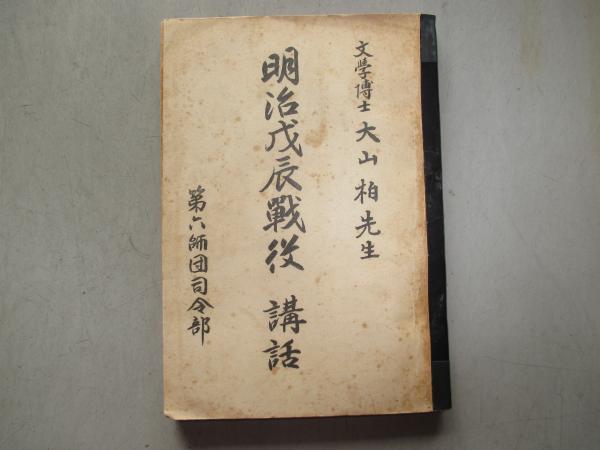 文學博士 大山柏先生
明治戊辰戰役 講話
第六師団司令部